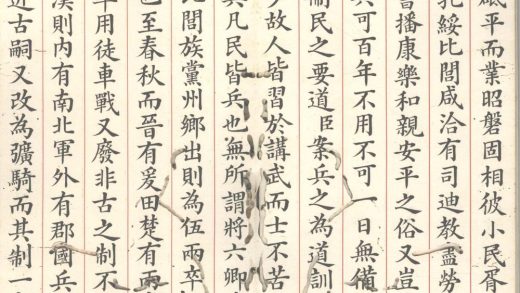 砥平而業昭磐固相彼小民胥
孔綏比閭咸洽有司迪教盡勞
播康樂和親安平之俗又豈
兵可百年不用不可一日無備
民之要道臣案兵之為道訓
故人皆習於講武而士不苦
其凡民皆兵也無所謂將六卿
比閭族黨州鄉出則為伍兩卒
也至春秋而晉有爰田楚有兩
卒用徒車戰又廢非古之制不
漢則內有南北軍外有郡國兵
近古嗣又改為彍騎而其制一